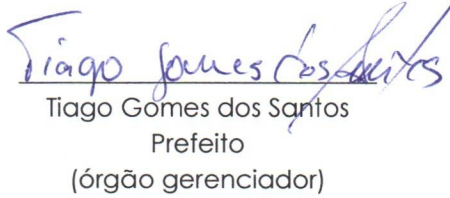 Tiago Gomes dos Santos
Tiago Gomes dos Santos
Prefeito
(órgão gerenciador)